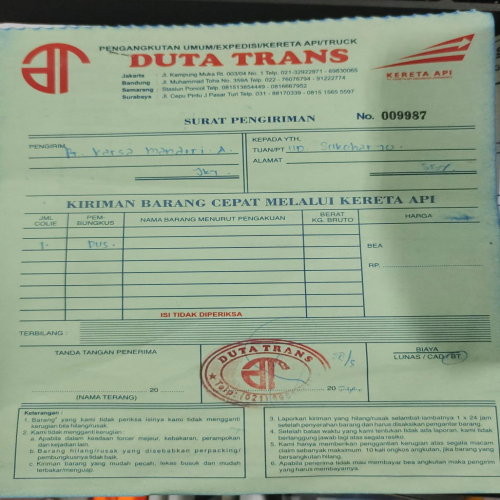 PENGANGKUTAN UMUM/EXPEDISI/KERETA API/TRUCK
DUTA TRANS
Jakarta : Jl. Kampung Muka Rt. 003/04 No. 1 Telp. 021-32922971 - 69830065
Bandung : Jl. Muhammad Toha No. 359A Telp. 022 - 76076794 - 91222774
Semarang : Stasiun Poncol Telp. 081513654449 - 0816667952
Surabaya : Jl. Cepu Pintu J Pasar Turi Telp. 031 - 88170339 - 0815 1565 5597
KERETA API
SURAT PENGIRIMAN No. 009987
PENGIRIM
KEPADA YTH,
TUAN/PT
ALAMAT
KIRIMAN BARANG CEPAT MELALUI KERETA API
JML COLIE
PEM-BUNGKUS
NAMA BARANG MENURUT PENGAKUAN
BERAT KG. BRUTO
HARGA
1. Dus.
BEA
RP.
ISI TIDAK DIPERIKSA
TERBILANG :
TANDA TANGAN PENERIMA
BIAYA
LUNAS / CAD / BT
DUTA TRANS
20
20
(NAMA TERANG)
Keterangan :
1. Barang² yang kami tidak periksa isinya kami tidak mengganti
kerugian bila hilang/rusak.
2. Kami tidak mengganti kerugian.
a. Apabila dalam keadaan forcer majeur, kebakaran, perampokan
dan kejadian lain.
b. Barang hilang/rusak yang disebabkan perpacking/
pembungkusnya tidak baik.
c. Kiriman barang yang mudah pacah, lekas busuk dan mudah
terbakar/menguap.
3. Laporkan kiriman yang hilang/rusak selambat-lambatnya 1 x 24 jam
setelah penyerahan barang dan harus disaksikan pengantar barang.
4. Setelah batas waktu yang kami tentukan tidak ada laporan, kami tidak
bertanggung jawab lagi atas segala resiko.
5. Kami hanya memberikan penggantian kerugian atas segala macam
claim sebanyak maksimum 10 kali ongkos angkutan, jika barang yang
bersangkutan hilang.
6. Apabila penerima tidak mau membayar bea angkutan maka pengirim
yang harus membayarnya.